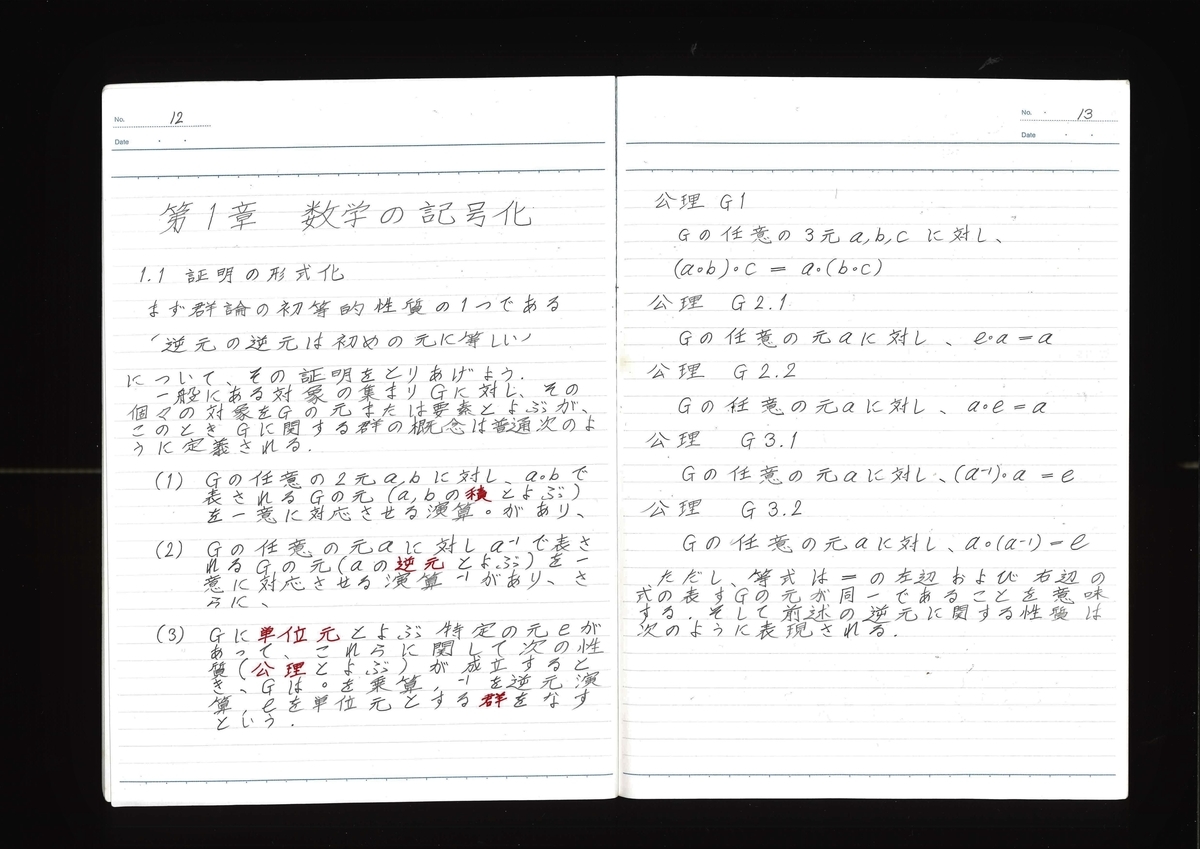 No. 12
Date
第1章 数学の記号化
1.1 証明の形式化
まず群論の初等的性質の1つである
「逆元の逆元は初めの元に等しい」
について、その証明をとりあげよう.
一般にある対象の集まりGに対し、その
個々の対象をGの元または要素とよぶが、
このときGに関する群の概念は普通次のよ
うに定義される.
(1) Gの任意の2元a,bに対し、a∘bで
表されるGの元(a,bの積とよぶ)
を一意に対応させる演算∘があり、
(2) Gの任意の元aに対しa⁻¹で表さ
れるGの元(aの逆元とよぶ)を一
意に対応させる演算⁻¹があり、さ
らに、
(3) Gに単位元とよぶ特定の元eが
あって、これらに関して次の性
質(公理とよぶ)が成立すると
き、Gは∘を乗算,⁻¹を逆元演
算,eを単位元とする群をなす
という.
No. 13
Date
公理 G1
Gの任意の3元a,b,cに対し、
(a∘b)∘c = a∘(b∘c)
公理 G2.1
Gの任意の元aに対し、e∘a=a
公理 G2.2
Gの任意の元aに対し、a∘e=a
公理 G3.1
Gの任意の元aに対し、(a⁻¹)∘a=e
公理 G3.2
Gの任意の元aに対し、a∘(a⁻¹)=e
ただし、等式は=の左辺および右辺の
式の表すGの元が同一であることを意味
する.そして前述の逆元に関する性質は
次のように表現される.